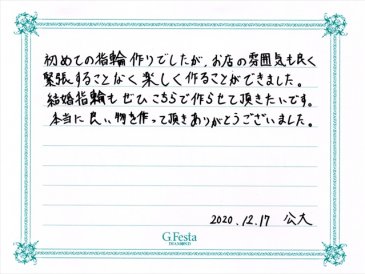 初めての指輪作りでしたが、お店の雰囲気も良く
緊張することなく楽しく作ることができました。
結婚指輪もぜひこちらで作らせて頂きたいです。
本当に良い物を作って頂きありがとうございました。
2020.12.17 公大
G.Festa
DIAMOND